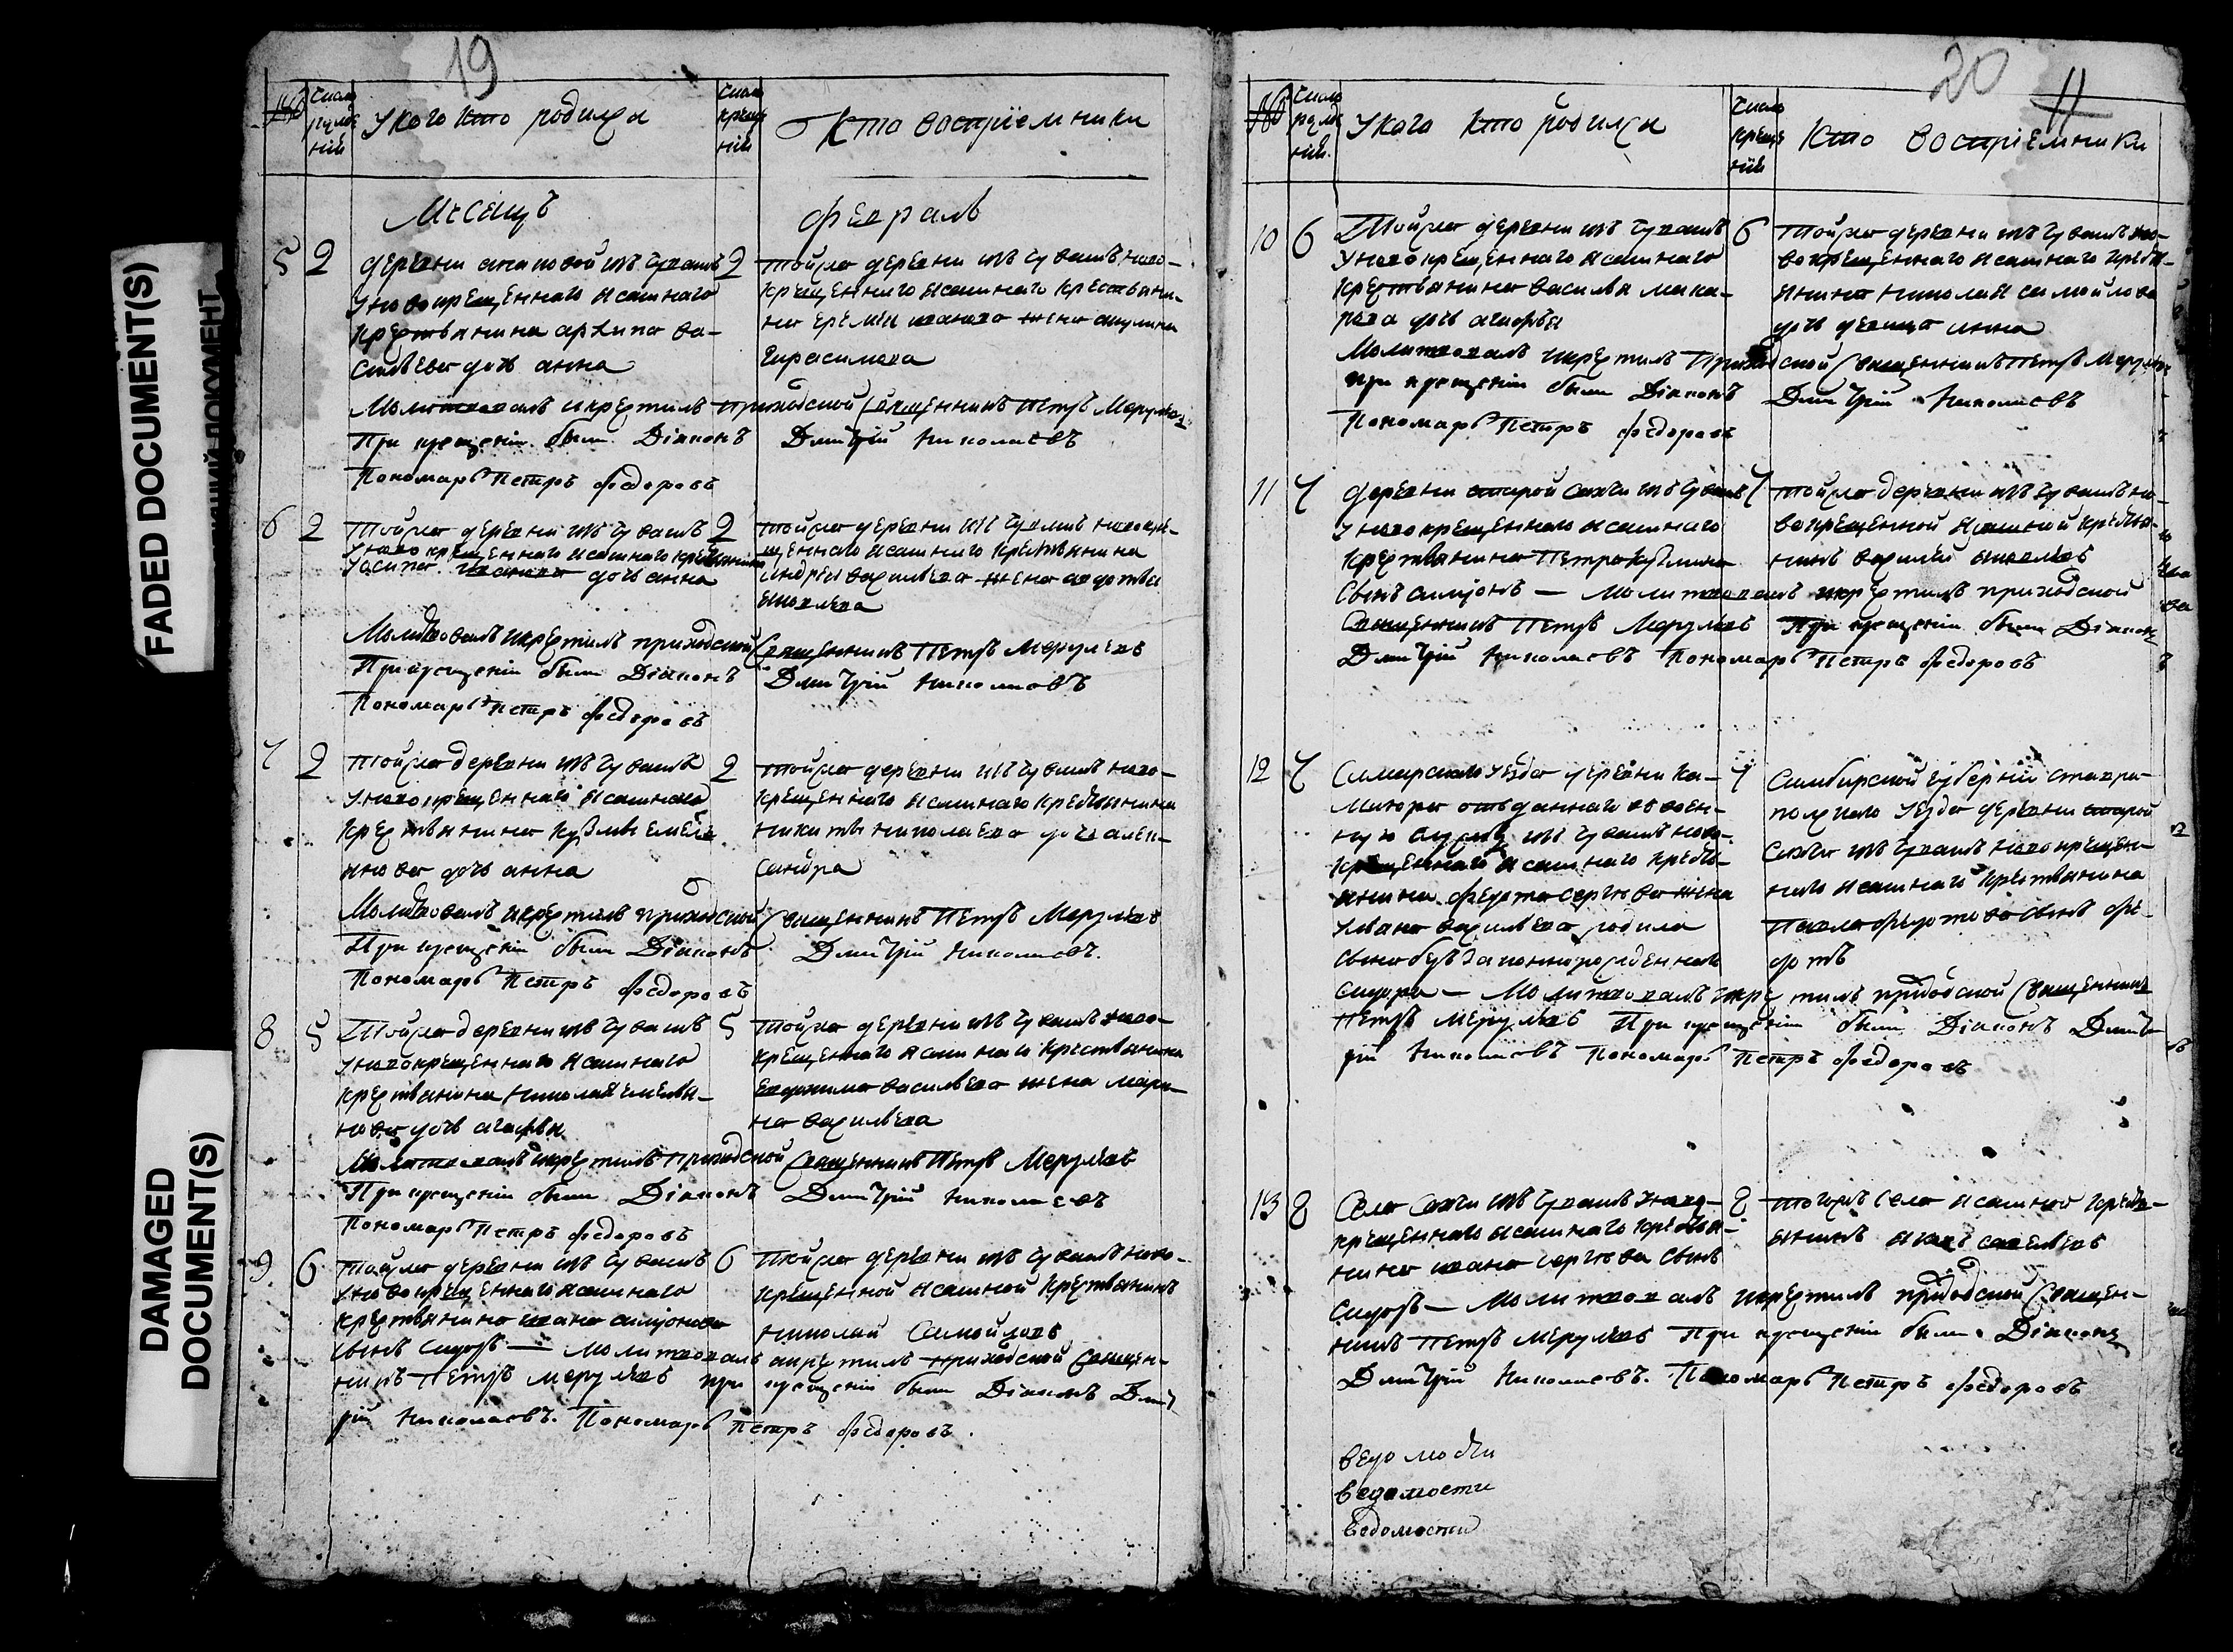 FADED DOCUMENT(S)
DAMAGED
DOCUMENT(S)
19
№
Число
рожде
ній
У кого кто родился
Число
креще
ній
Кто восприемники
Месяцъ февраль
5 2
деревни изъ чувашъ
у новокрещеннаго ясашнаго
крестьянина архипа ва-
сильева дочь анна
2
тойже деревни изъ чувашъ ново-
крещеннаго ясашнаго крестьяни-
на еремея иванова жена акулина
герасимова
Молитвовалъ и крестилъ приходской священникъ Петръ
При крещеніи были Діаконъ Дмитрій Николаевъ
Пономарь Петръ Федоровъ
6 2
Тойже деревни изъ чувашъ
у новокрещеннаго ясашнаго крестьянина
иванова дочь анна
2
тойже деревни изъ чувашъ новокре-
щеннаго ясашнаго крестьянина
андрея васильева жена авдотья
яковлева
Молитвовалъ и крестилъ приходской священникъ Петръ
При крещеніи были Діаконъ Дмитрій Николаевъ
Пономарь Петръ Федоровъ
7 2
тойже деревни изъ чувашъ
у новокрещеннаго ясашнаго
крестьянина кузьмы емель
янова дочь анна
2
тойже деревни изъ чувашъ ново-
крещеннаго ясашнаго крестьянина
никиты николаева дочь алек-
сандра
Молитвовалъ и крестилъ приходской священникъ Петръ
При крещеніи были Діаконъ Дмитрій Николаевъ.
Пономарь Петръ Федоровъ
8 5
Тойже деревни изъ чувашъ
у новокрещеннаго ясашнаго
крестьянина николая емелья-
нова дочь агафья
5
Тойже деревни изъ чувашъ ново-
крещеннаго ясашнаго крестьянина
евдокима васильева жена мари-
на васильева
Молитвовалъ и крестилъ приходской священникъ Петръ
При крещеніи были Діаконъ Дмитрій Николаевъ
Пономарь Петръ Федоровъ
9 6
тойже деревни изъ чувашъ
у новокрещеннаго ясашнаго
крестьянина ивана симіонова
сынъ сидоръ — молитвовалъ
6
Тойже деревни изъ чувашъ ново-
крещенной ясашной крестьянинъ
николай Самойловъ
и крестилъ приходской священ-
никъ Петръ при крещеніи были Діаконъ Дмит
рій Николаевъ. Пономарь Петръ Федоровъ.
20
11
№
Число
рожде
ній
У кого кто родился
Число
креще
ній
Кто восприемники
10 6
Тойже деревни изъ чувашъ
у новокрещеннаго ясашнаго
крестьянина василья мака-
рова дочь агафья
6
тойже деревни изъ чувашъ но-
вокрещеннаго ясашнаго кресть-
янина николая самойлова
дочь девица анна
Молитвовалъ и крестилъ приходской священникъ Петръ
при крещеніи были Діаконъ Дмитрій Николаевъ
Пономарь Петръ Федоровъ
11 7
деревни старой сахчи изъ чувашъ
у новокрещеннаго ясашнаго
крестьянина Петра кузмина
сынъ симіонъ — молитвовалъ
7
тойже деревни изъ чувашъ но-
вокрещенной ясашной крестья-
нинъ василей яковлевъ
и крестилъ приходской
священникъ Петръ При крещеніи были Діаконъ
Дмитрій Николаевъ Пономарь Петръ Федоровъ
12 7
Самарскаго уезда деревни
отъданнаго въ воен-
ную службу изъ чувашъ ново-
крещеннаго ясашнаго кресть-
янина федота сергеева жена
васильева родила
сына безъзаконнорожденнаго
сидора — молитвовалъ
7
Симбирской губерніи ставро-
польскаго уезда деревни старой
сахчи изъ чувашъ новокрещен-
наго ясашнаго крестьянина
Павла федотова сынъ фе-
дотъ
и крестилъ приходской священникъ
Петръ При крещеніи были Діаконъ Дмит
рій Николаевъ Пономарь Петръ Федоровъ
13 8
Села Сахчи изъ чувашъ ново-
крещеннаго ясашнаго крестья-
нина ивана сергеева сынъ
сидоръ — молитвовалъ
8
тогожъ села ясашной кресть-
янинъ савельевъ
и крестилъ приходской священ-
никъ Петръ При крещеніи были Діаконъ
Дмитрій Николаевъ. Пономарь Петръ Федоровъ
ведомости
ведомости
ведомости